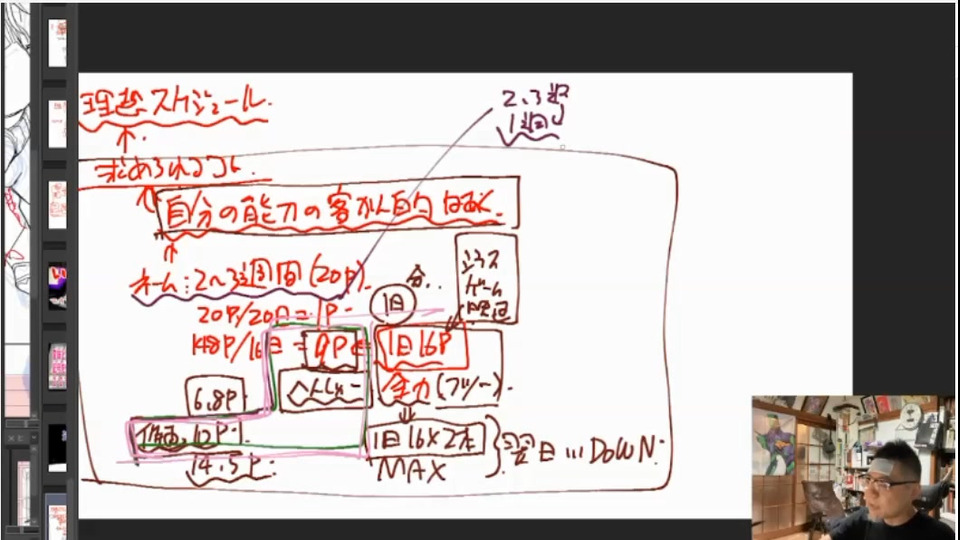 理想スケジュール.
2、3週
1週
求められるコト.
自分の能力の客かん的はあく.
ネーム:2~3週間(20P).
分..
1日
ゲーム
20P/20日=1P
148P/16日=9P
1日16P
全力(フツー).
6.8P
12P
1日16×2本
MAX
翌日...DOWN.
14.5P.